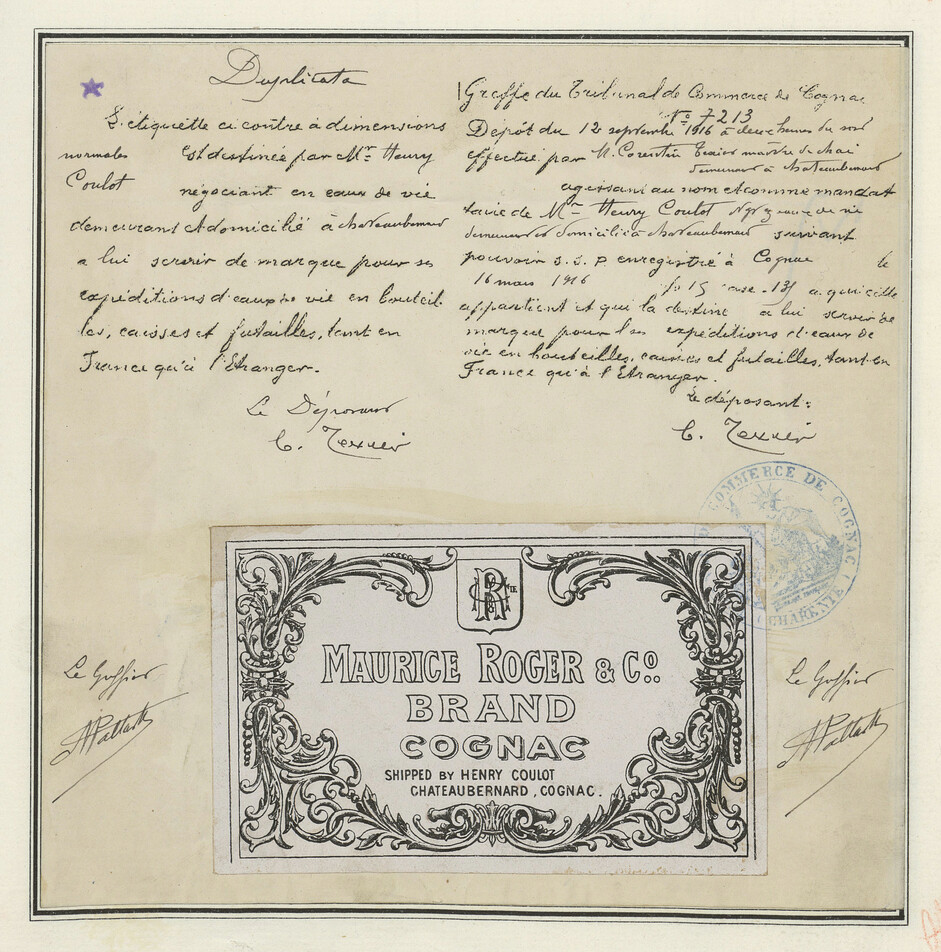 Duplicata
L'étiquette ci contre à dimensions
normales est destinée par Mr Henry
Coulot négociant en eaux de vie
demeurant et domicilié à chateaubernard
a lui servir de marque pour ses
expéditions d'eaux de vie en bouteil
les, caisses et futailles, tant en
France qu'à l'Etranger.
Le Déposant
C. Texier
Greffe du Tribunal de Commerce de Cognac
No 7213
Dépôt du 12 septembre 1916 à deux heures du soir
effectué par M. Corentin Texier maître de chai
demeurant à chateaubernard
agissant au nom et comme mandat
taire de Mr Henry Coulot Ngt eaux de vie
demeurant et domicilié à chateaubernard suivant
pouvoir s.s.p enregistré à Cognac le
16 mars 1916 fo 15 case 131 a qui elle
appartient et qui la destine a lui servir de
marque pour les expéditions d'eaux de
vie en bouteilles, caisses et futailles, tant en
France qu'à l'Etranger.
Le déposant:
C. Texier
COMMERCE DE COGNAC
CHARENTE
RM
CIE
MAURICE ROGER & Co.
BRAND
COGNAC
SHIPPED BY HENRY COULOT
CHATEAUBERNARD, COGNAC.
Le Greffier
Le Greffier